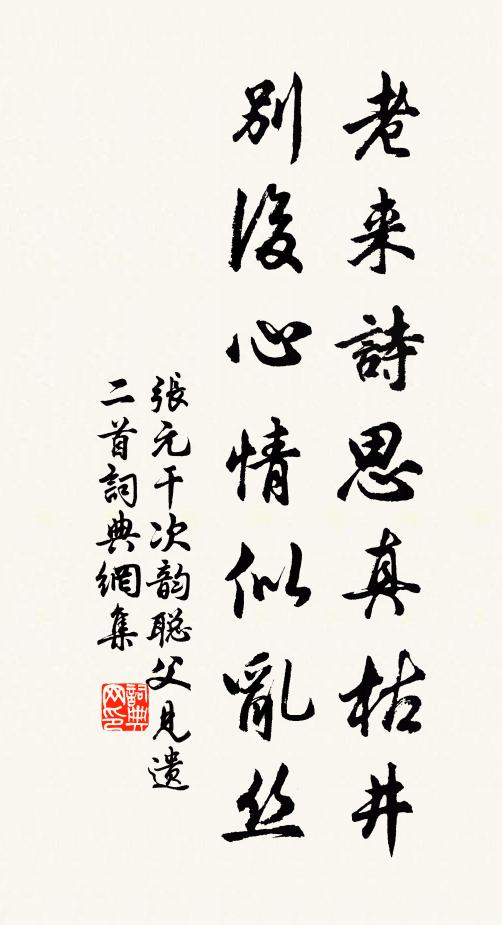 老来詩思真枯井
別後心情似亂丝
張元干次韵聪父見遗
二首詞典網集
詞典
网印